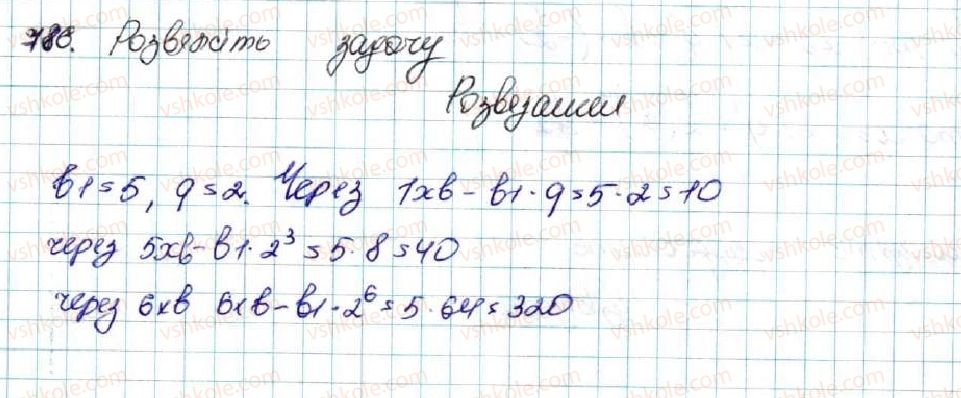 788. Розвяжіть задачу
Розвезання
b1 = 5, q = 2. Через 1хв - b1 · q = 5 · 2 = 10
через 5хв - b1 · 2³ = 5 · 8 = 40
через 6хв 6хв - b1 · 2⁶ = 5 · 64 = 320